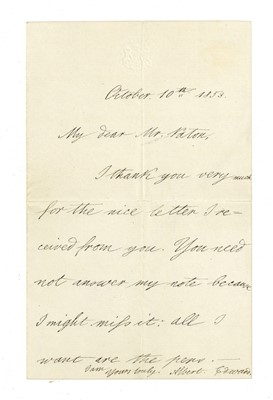 October. 10th 1853.
My dear Mr. Paton,
I thank you very much
for the nice letter I re-
ceived from you. You need
not answer my note because
I might miss it: all I
want are the pens. —
I am yours truly. Albert Edward.